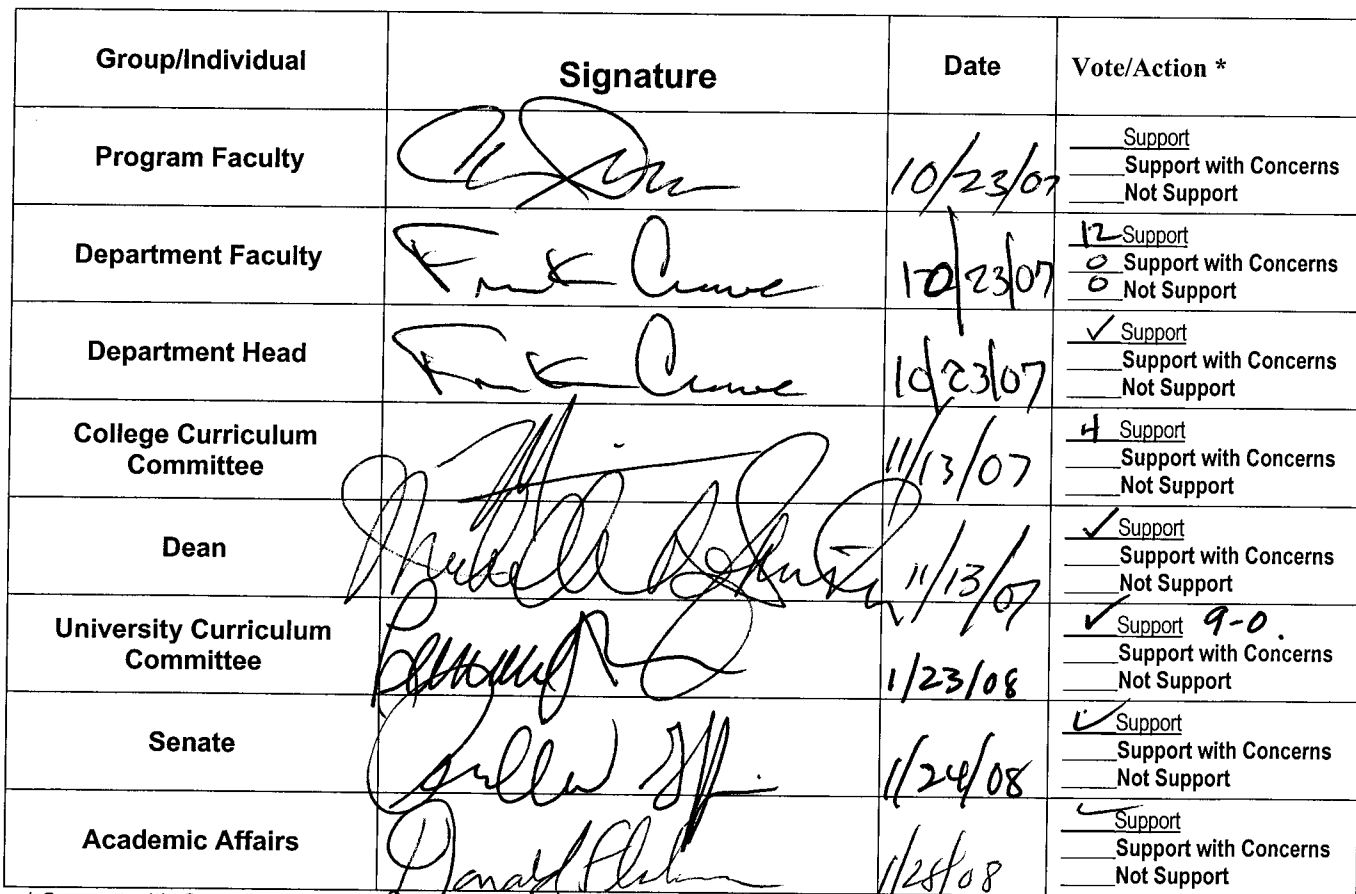 Group/Individual Signature Date Vote/Action *
Program Faculty 10/23/07
____Support
____Support with Concerns
____Not Support
Department Faculty 10/23/07
12 Support
0 Support with Concerns
0 Not Support
Department Head 10/23/07
✓ Support
____Support with Concerns
____Not Support
College Curriculum
Committee
11/13/07
4 Support
____Support with Concerns
____Not Support
Dean 11/13/07
✓ Support
____Support with Concerns
____Not Support
University Curriculum
Committee
1/23/08
✓ Support 9-0.
____Support with Concerns
____Not Support
Senate 1/24/08
✓ Support
____Support with Concerns
____Not Support
Academic Affairs Donald 1/28/08
✓ Support
____Support with Concerns
____Not Support